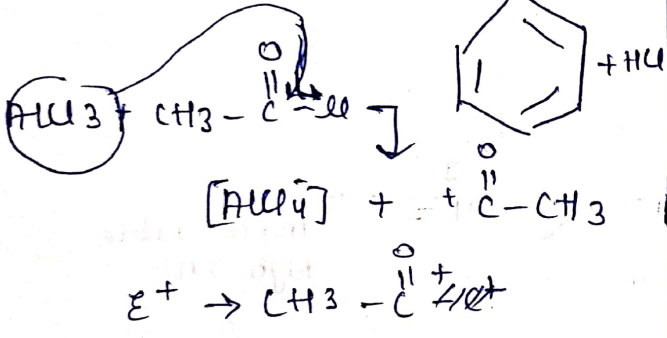 O
AlCl3 + CH3 – C – Cl + HCl
O
[AlCl4] + + C – CH3
O
E+ → CH3 – C +